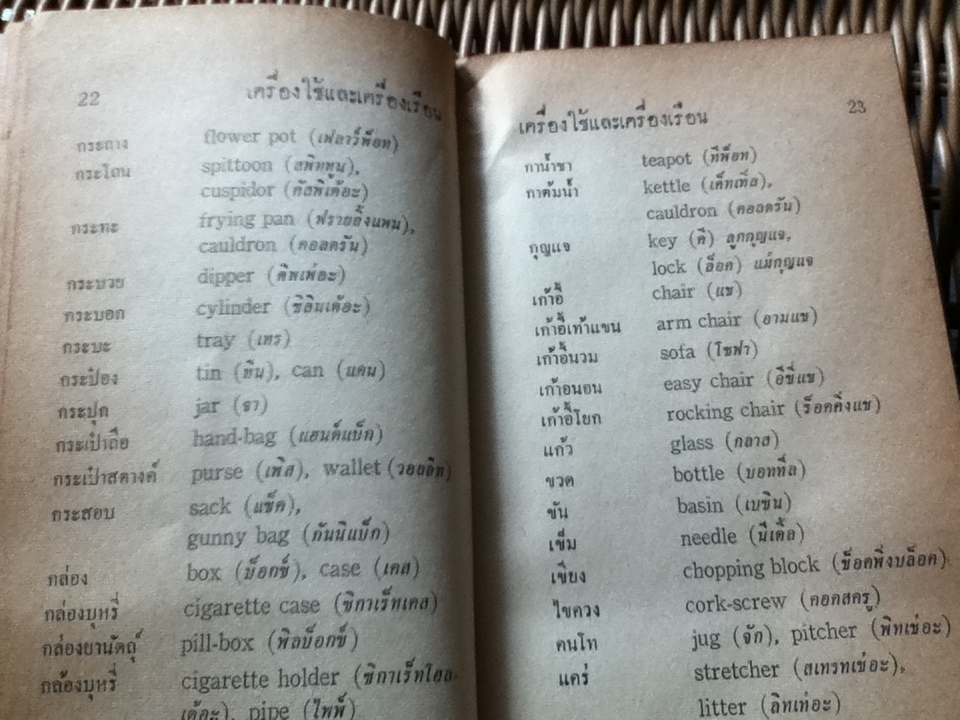 22 เครื่องใช้และเครื่องเรือน
กระถาง flower pot (เฟลาว์พ็อท)
กระโถน spittoon (สพิททูน),
cuspidor (คัสพิเด้อะ)
กระทะ frying pan (ฟรายอิ้งแพน),
cauldron (คอลดรัน)
กระบวย dipper (ดิพเพ่อะ)
กระบอก cylinder (ซิลินเด้อะ)
กระบะ tray (เทร)
กระป๋อง tin (ทิน), can (แคน)
กระปุก jar (จา)
กระเป๋าถือ hand-bag (แฮนด์แบ็ก)
กระเป๋าสตางค์ purse (เพิส), wallet (วอลลิท)
กระสอบ sack (แซ็ค),
gunny bag (กันนิแบ็ก)
กล่อง box (บ็อกซ์), case (เคส)
กล่องบุหรี่ cigarette case (ซิกาเร็ทเคส)
กล่องยานัตถุ์ pill-box (พิลบ็อกซ์)
กล้องบุหรี่ cigarette holder (ซิกาเร็ทโฮล-
เด้อะ), pipe (ไพพ์)
เครื่องใช้และเครื่องเรือน 23
กาน้ำชา teapot (ทีพ็อท)
กาต้มน้ำ kettle (เค็ทเทิ่ล),
cauldron (คอลดรัน)
กุญแจ key (คี) ลูกกุญแจ,
lock (ล็อค) แม่กุญแจ
เก้าอี้ chair (แช)
เก้าอี้เท้าแขน arm chair (อามแช)
เก้าอี้นวม sofa (โซฟา)
เก้าอนอน easy chair (อีซี่แช)
เก้าอี้โยก rocking chair (ร็อคคิ่งแช)
แก้ว glass (กลาส)
ขวด bottle (บอททึ่ล)
ขัน basin (เบซิน)
เข็ม needle (นีเดิ้ล)
เขียง chopping block (ช็อคพิ่งบล็อค)
ไขควง cork-screw (คอกสครู)
คนโท jug (จัก), pitcher (พิทเช่อะ)
แคร่ stretcher (สเทรทเช่อะ),
litter (ลิทเท่อะ)